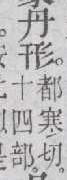 丹形。
都寒切。
十四部。